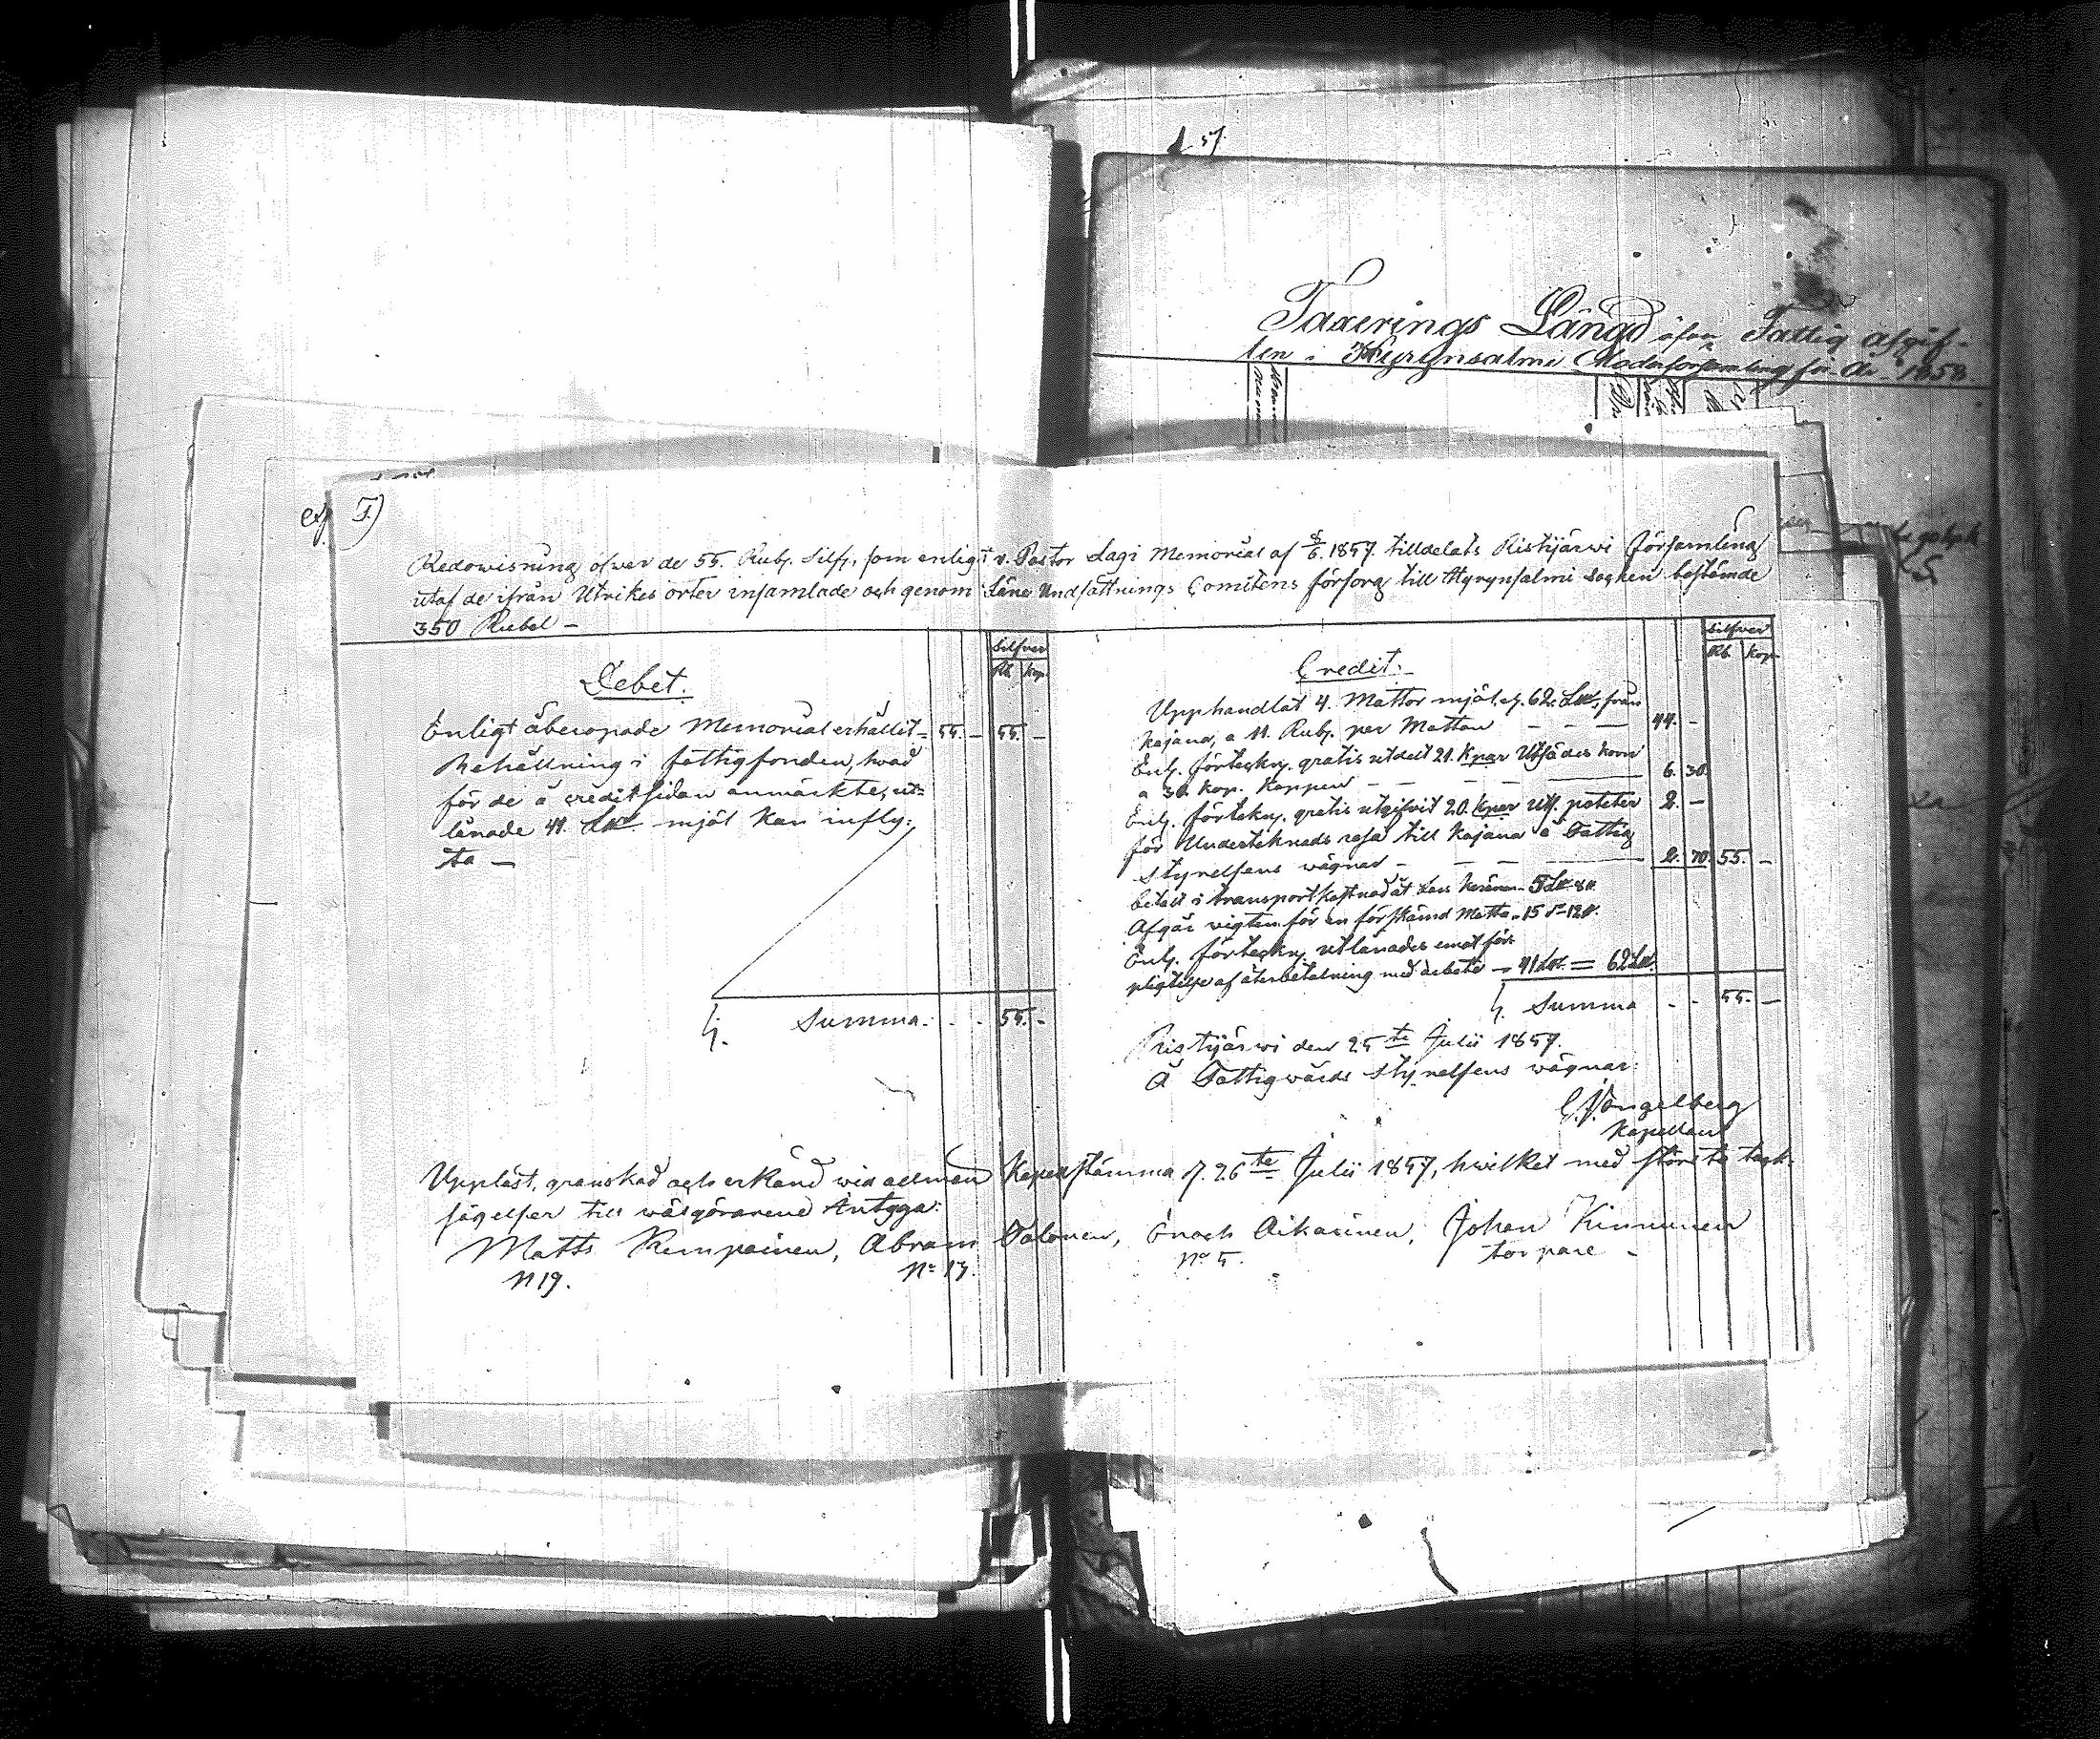 57.
Taxerings Längd öfver Fattig afgif-
ten i Hyrynsalmi Moderförsamling för År 1858
Redowisning öfwer de 55. Rub. Silfr, som enligt v. Pastor Lagi Memorial af 8/6. 1857. tilldelats Ristijärwi Församling
utaf de ifrån Utrikes orter insamlade och genom Läne Undsättnings Comitens försorg till Hyrynsalmi Socken bestämde
350 Rubel –
Silfver
Rb. Kop.
Debet.
Enligt åberopade Memorial erhållit – 55. – 55. –
Behållning i fattigfonden, hwad
för de å creditsidan anmärkte, ut-
lånade 41. L℔ mjöl kan infly-
ta —
S. Summa. - - 55. -
Silfver
Rb. Kop.
Credit.
Upphandlat 4. Mattor mjöl, 62. L℔, från
Kajana, a 11. Rub. per Mattan — — — 44. –
Enl. förteckn. gratis utdelt 21. Kpar Utsädes korn
a 30. kop. Kappen — — — 6. 30.
Enl. förteckn. gratis utgifvit 20. kpar Uts. potater 2. –
för Undertecknads resa till Kajana å Fattig
styrelsens wägnar – — — 2. 70. 55. –
betalt i transportkostnad åt Lars Keränen – 5 L℔ 8 ℔.
Afgår vigten för en förskämd Matta – 15 L℔ 12 ℔.
Enl. förteckn. utlånades emot för-
pligtelse af återbetalning med arbete – 41 L℔. = 62 L℔.
S. Summa - - 55. –
Ristijärwi den 25te Julii 1857.
Å Fattigwårds Styrelsens wägnar:
Kapellan
Uppläst, granskad och erkänd wid allmän Kapellstämma d. 26te Julii 1857, hwilket med största tack-
sägelser till wälgörarene intyga:
Matts Kemppainen, Abram Tolonen, Enoch Oikarinen, Johan Kinnunen
N 19. No 13. No 5. torpare –